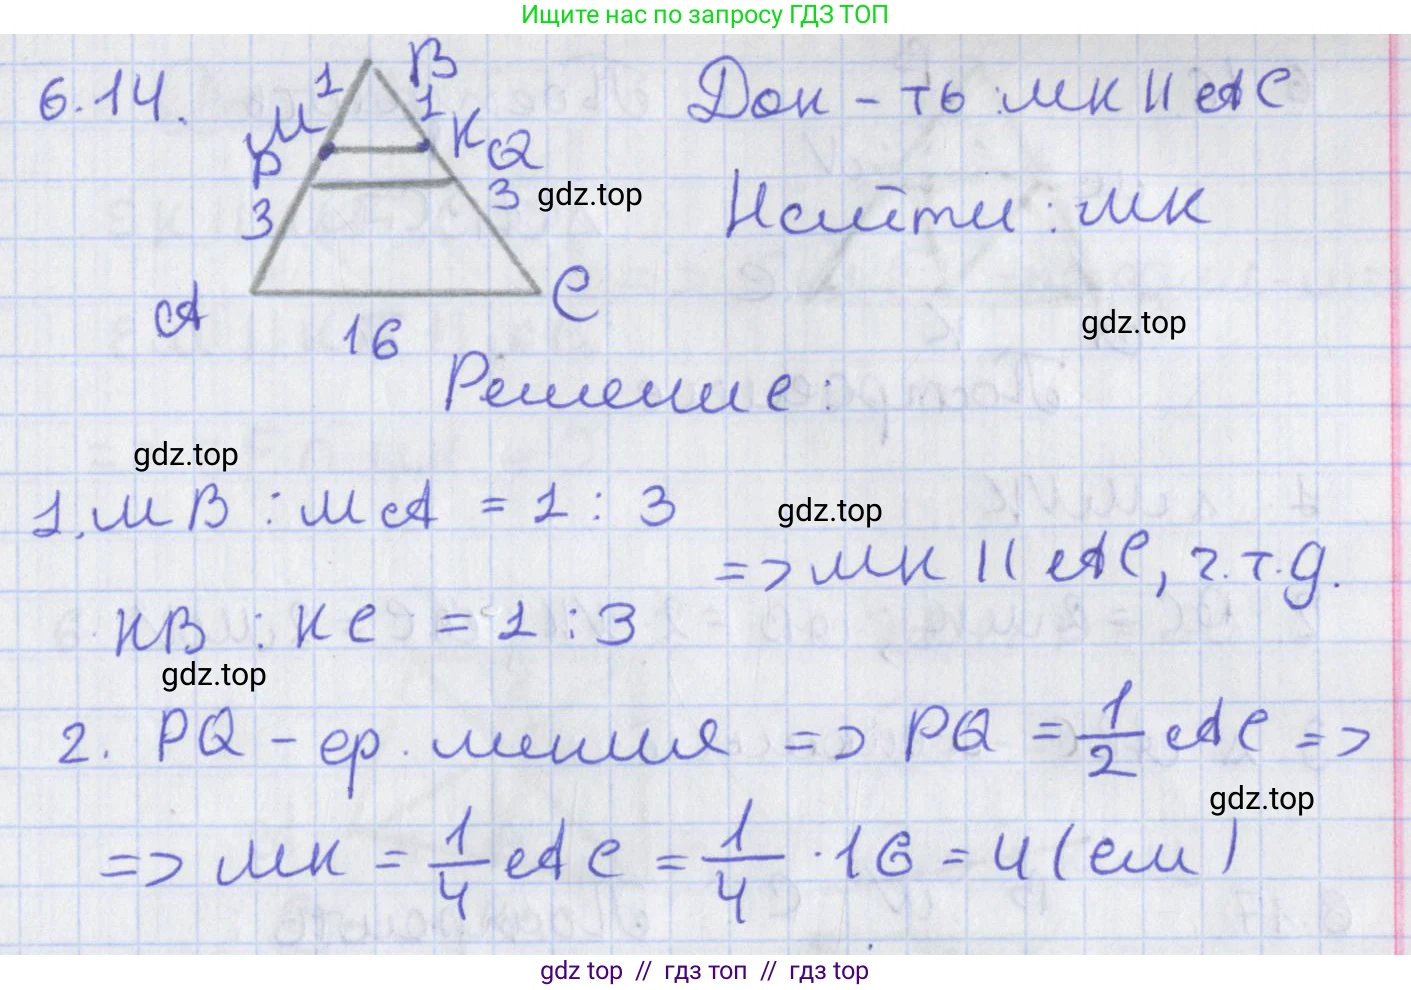 Ищите нас по запросу ГДЗ ТОП
6.14.
1
B
M
1
K
P
Q
3
3
gdz.top
A
C
16
Док-ть: MK || AC
Найти: MK
gdz.top
Решение:
gdz.top
1. MB : MA = 1 : 3
gdz.top
=> MK || AC, ч.т.д.
KB : KC = 1 : 3
gdz.top
2. PQ - ср. линия => PQ = 1/2 AC =>
gdz.top
=> MK = 1/4 AC = 1/4 · 16 = 4 (см)
gdz top // гдз топ // гдз top